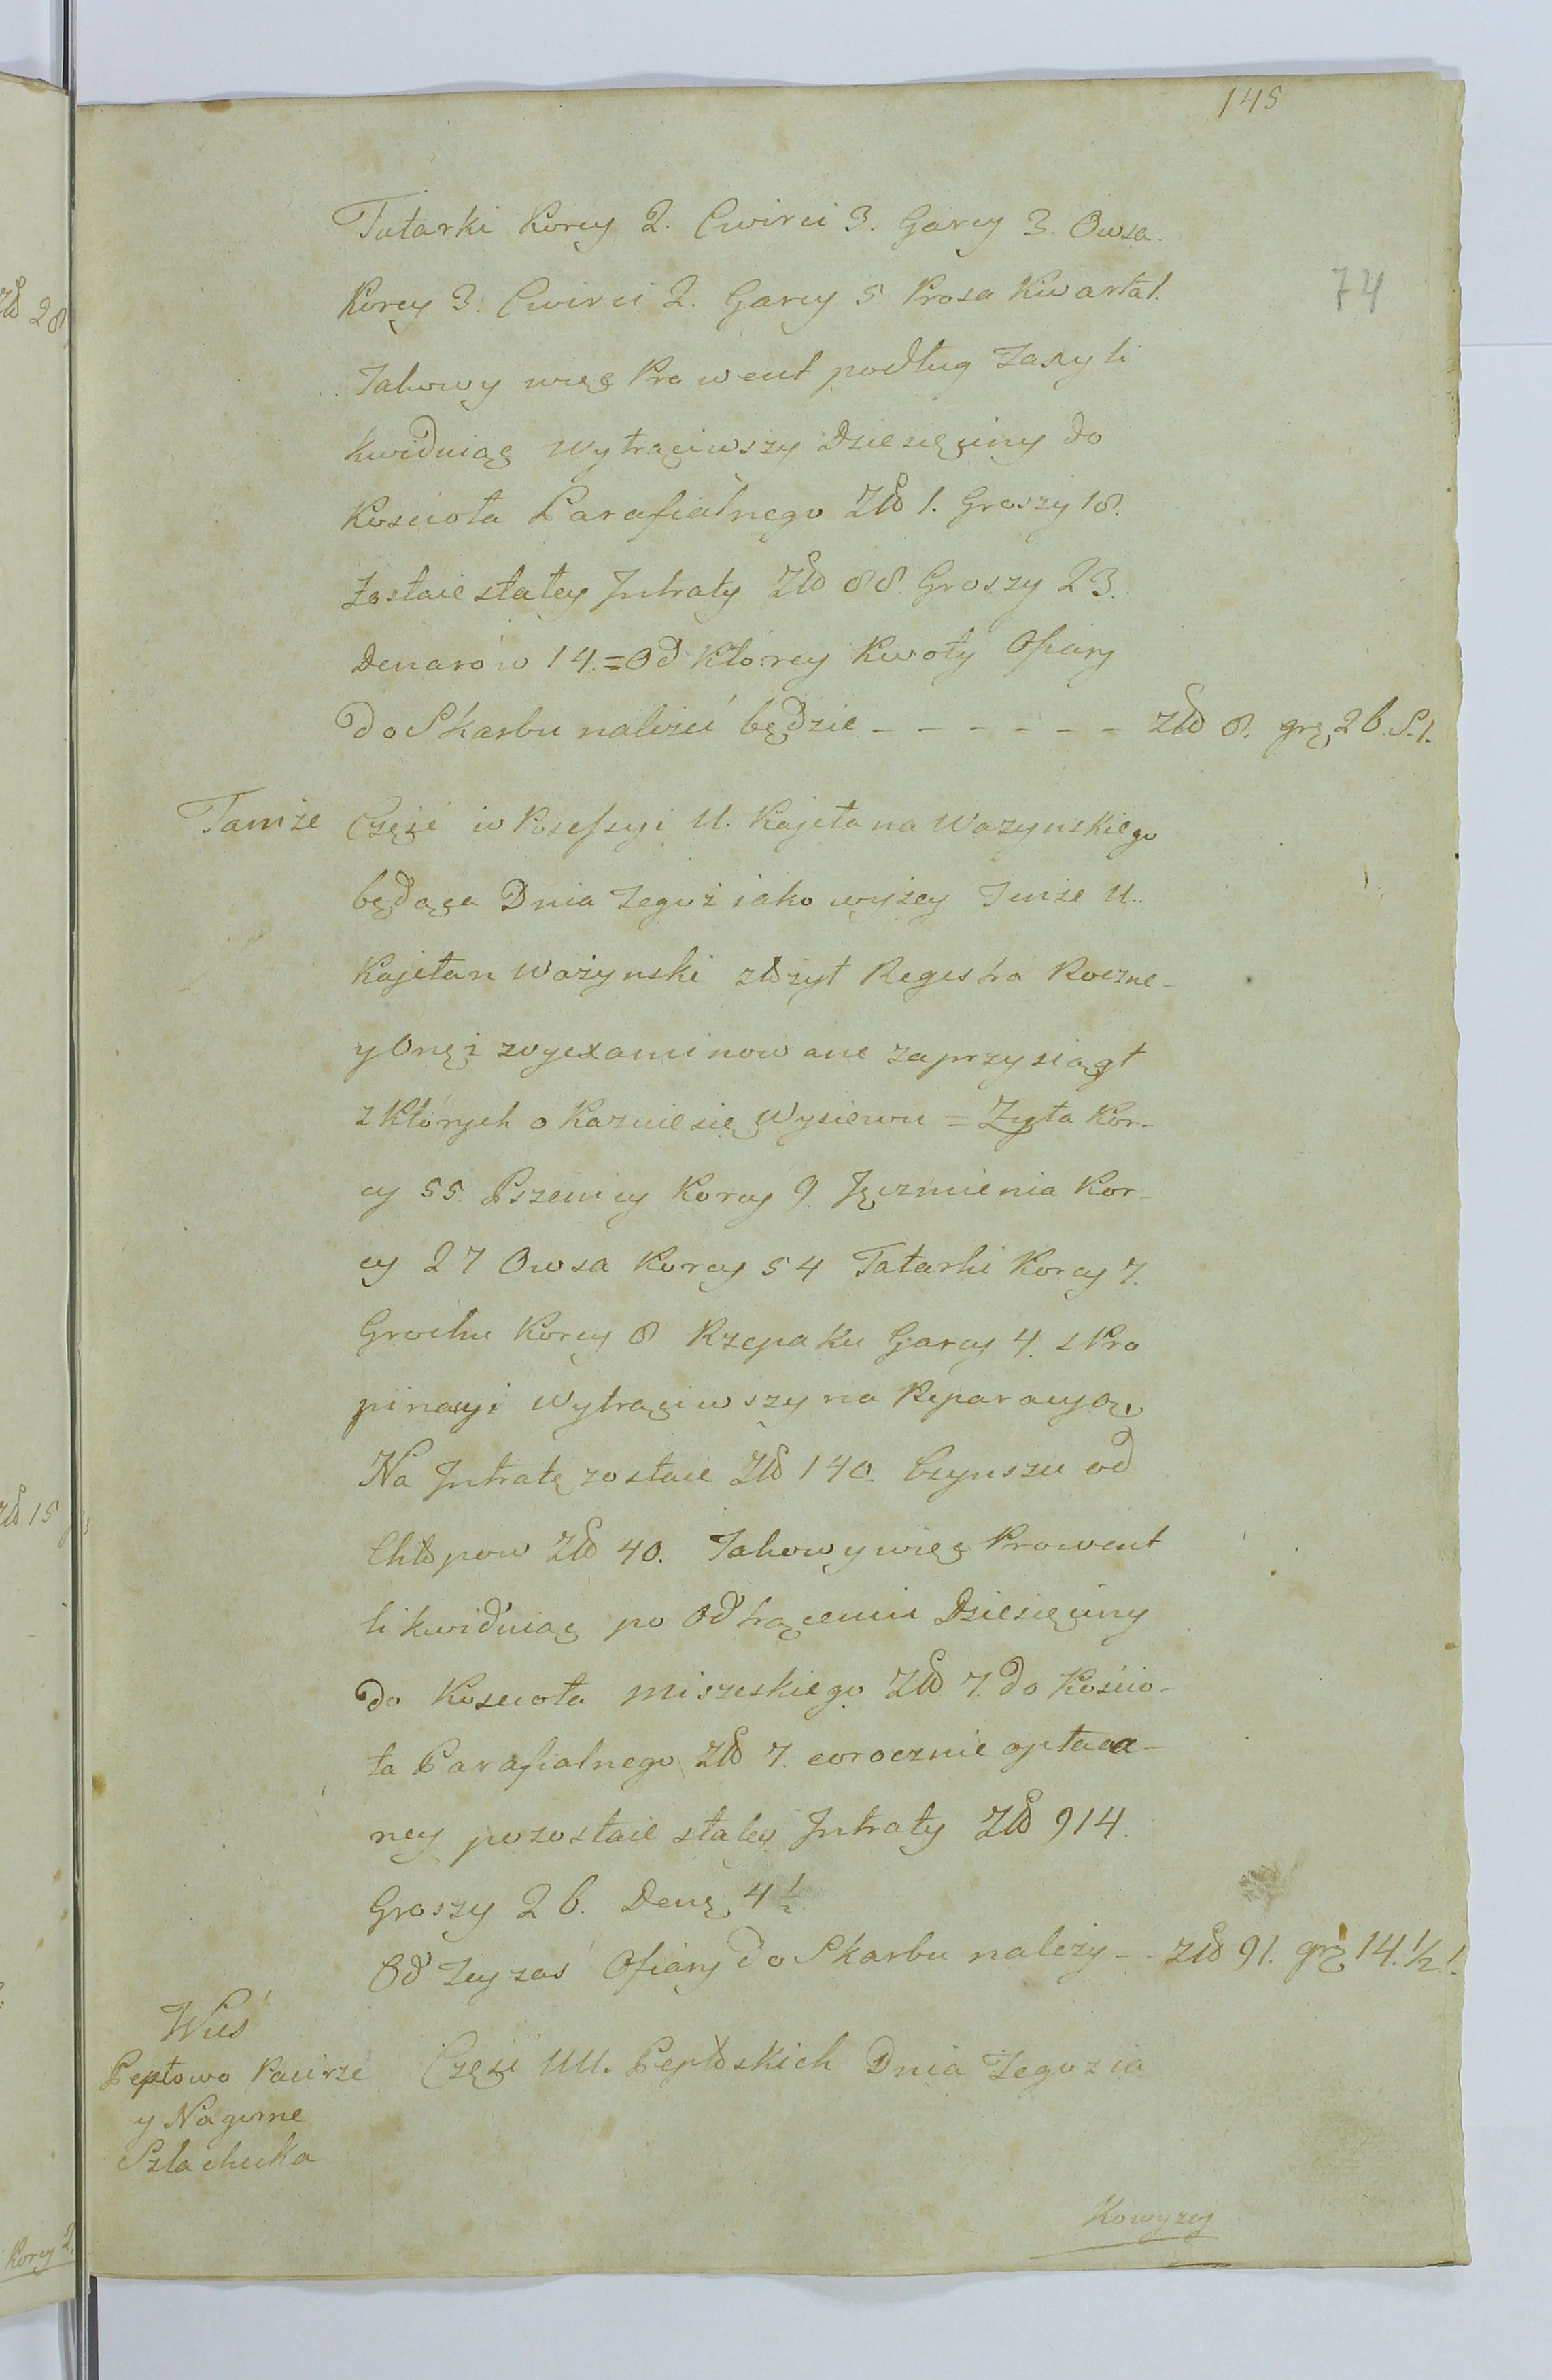 145
74
Tatarki Korcy 2. Cwirci 3. Garcy 3. Owsa
Korcy 3. Cwirci 2. Garcy 5 Prosa Kwarta 1.
Takowy więc Prowent podług Taxy li
kwiduiąc Wytrąciwszy Dziesięciny do
Koscioła Parafialnego Zło 1. Groszy 18.
Zostaie stałey Jntraty Zło 88 Groszy 23.
Denarow 14. = Od Którey Kwoty Ofiary
do Skarbu należeć będzie - - - - - - Zło 8. grz 26. S. 1.
Tamże Część w Possessyi U. Kajetana Wazynskiego
będąca Dnia Tegoż iako wyżey Tenże U.
Kajetan Ważynski złożył Regestra Roczne
y Oneż wyexaminowane zaprzysiągł
z Których o Kazuie się Wysiewu = Zyta Kor-
cy 55. Pszenicy Korcy 9. Jęczmienia Kor-
cy 27 Owsa Korcy 54 Tatarki Korcy 7.
Grochu Korcy 8 Rzepaku Garcy 4. z Pro
pinacyi Wytrąciwszy na Reparacyą
Na Jntratę zostaie Zło 140. Czynszu od
Chłopow Zło 40. Takowy więc Prowent
likwiduiąc po Odtrąceniu Dziesięciny
do Koscioła miszeskiego Zło 7. do Kościo-
ła Parafialnego Zło 7. corocznie opłaca-
ney pozostaie stałey Jntraty Zło 914.
Groszy 26. Dena 4 1/2.
Od Tey zaś Ofiary do Skarbu należy - - Zło 91. grz 14. 1/2 1.
Wieś
Pepłowo Pacirze
y Nagorne
Szlachecka
Część UU. Pepłoskich Dnia Tegoz ia
Kowyzey